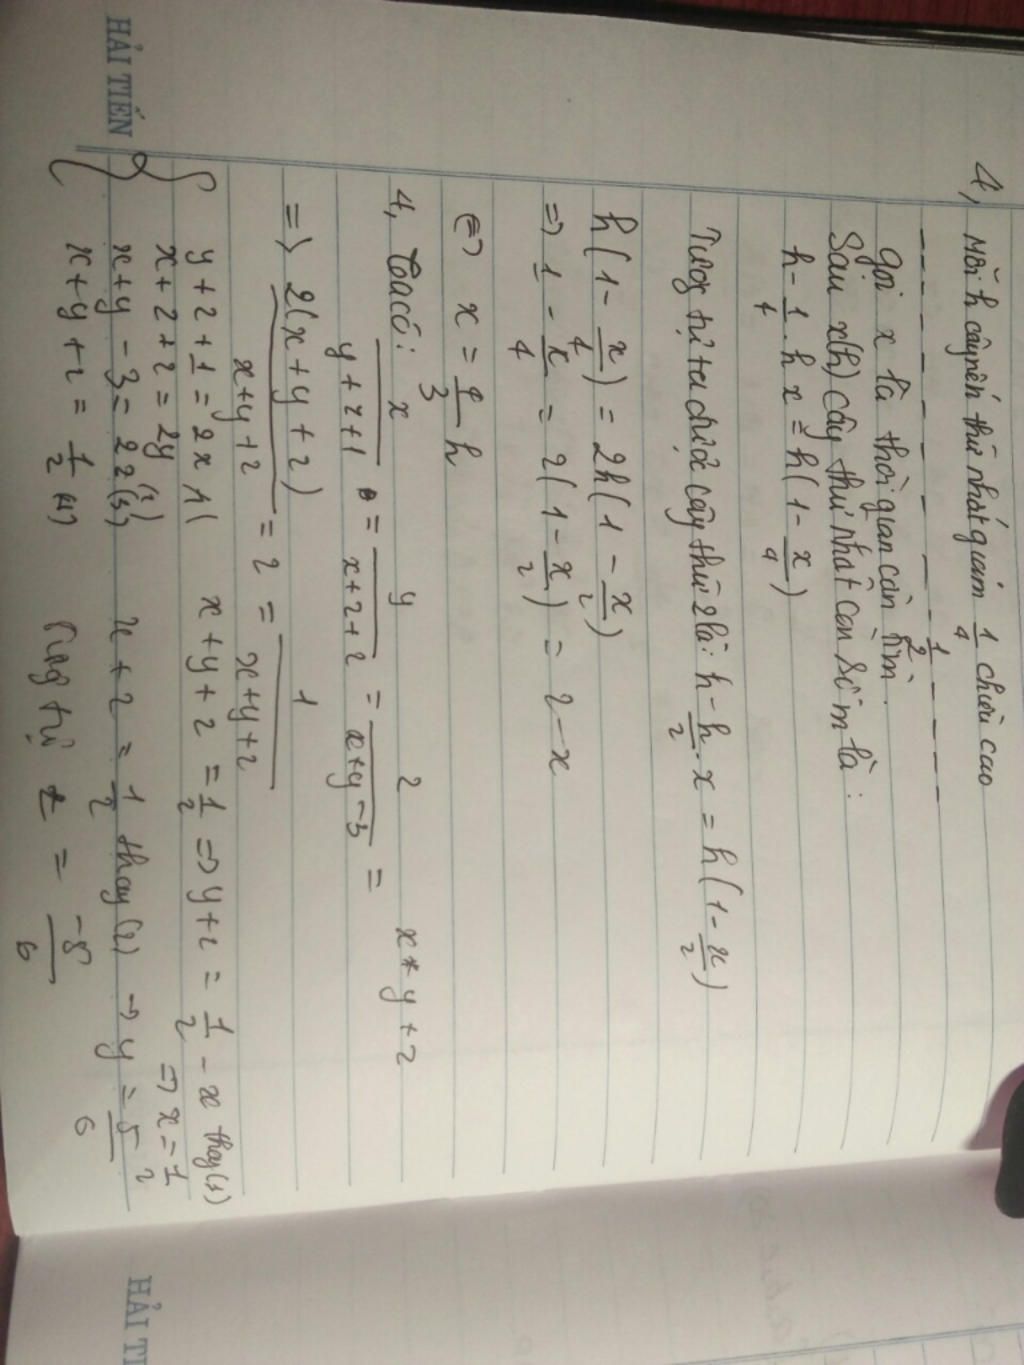 4, Mỗi h cây nến thứ nhất giảm 1/4 chiều cao
_ _ _ _ _ _ _ _ 1/2 _ _ _ _
Gọi x là thời gian cần tìm.
Sau x(h) cây thứ nhất còn số m là:
h - 1/4 . h x = h(1 - x/4)
Tương tự ta được cây thứ 2 là: h - h/2 . x = h(1 - x/2)
h(1 - x/4) = 2h(1 - x/2)
=> 1 - x/4 = 2(1 - x/2) = 2 - x
<=> x = 4/3 h
4, Ta có: x/(y+z+1) = y/(x+z+2) = z/(x+y-3) = x+y+z
=> 2(x+y+z)/(x+y+z) = 2 = 1/(x+y+z)
y+z+1 = 2x 1( x+y+z = 1/2 => y+z = 1/2 - x thay(1)
x+z+2 = 2y (2) => x = 1/2
x+y-3 = 2z (3) x+z = 1/2 thay (2) -> y = 5/6
x+y+z = 1/2 (4) Tương tự z = -5/6
HẢI TIẾN
HẢI TI